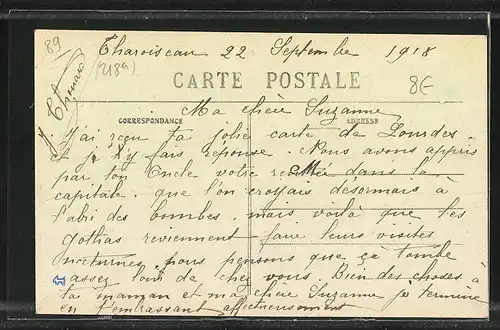 89
Tharoiseau 22 Septembre 1918
(218a)
8€
CARTE POSTALE
J. Thenard
Ma chère Suzanne
CORRESPONDANCE
ADRESSE
J'ai reçu ta jolie carte de Lourdes.
et j'y fais réponse. Nous avons appris
par ton Oncle votre rentrée dans la
capitale. que l'on croyais désormais à
l'abri des bombes, mais voilà que les
gothas reviennent faire leurs visites
nocturnes, nous pensons que ça tombe
assez loin de chez vous. Bien des choses à
ta maman et ma chère Suzanne je termine
en t'embrassant affectueusement